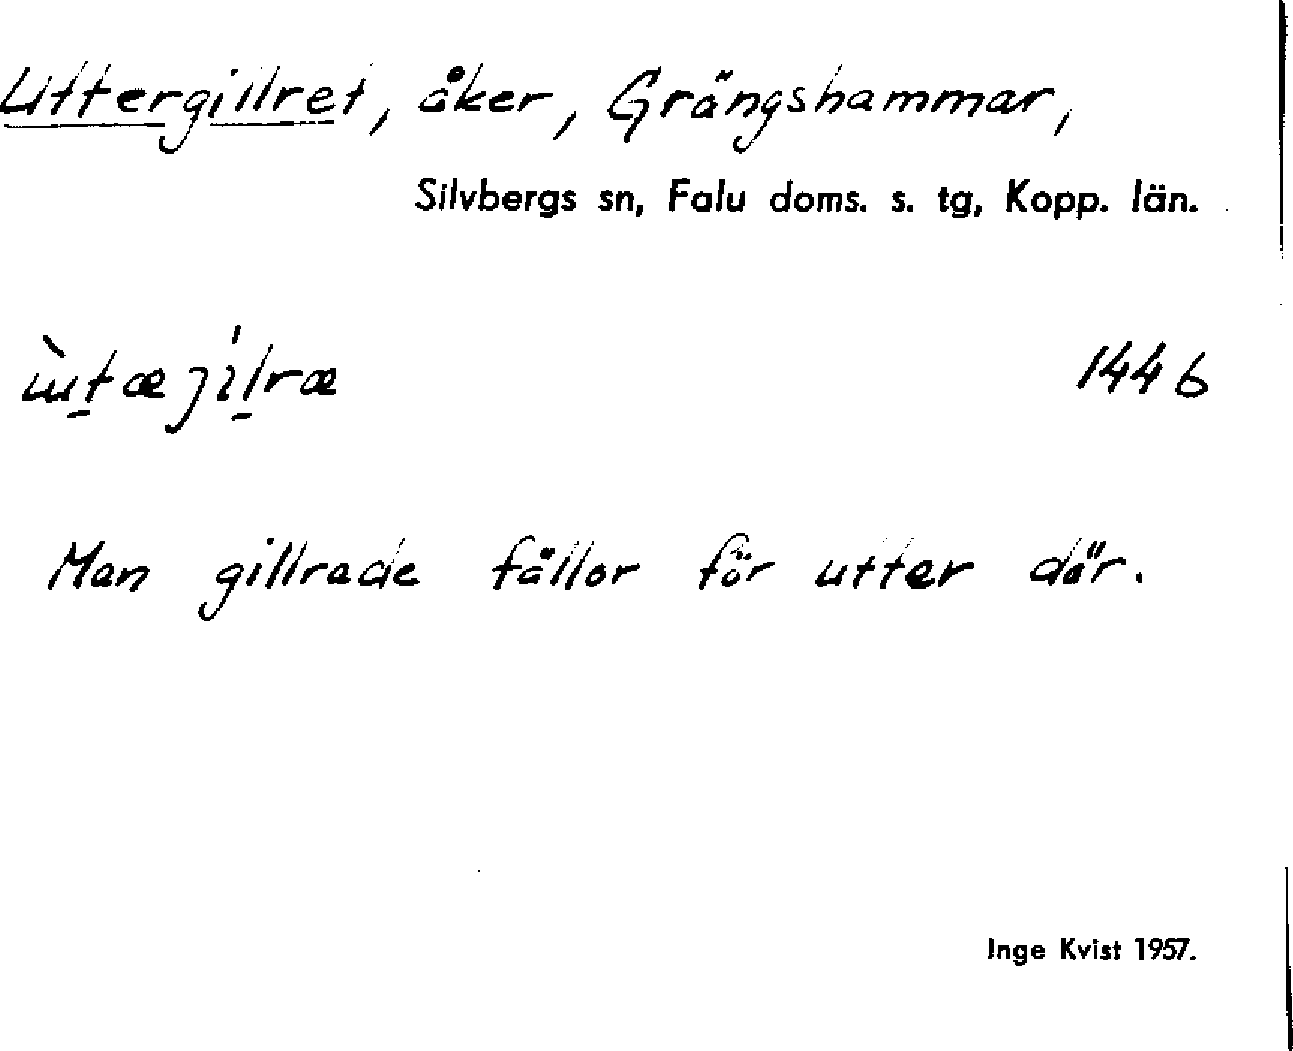 Uttergillret, åker, Grängshammar,
Silvbergs sn, Falu doms. s. tg, Kopp. län.
1446
Man gillrade fällor för utter där.
Inge Kvist 1957.